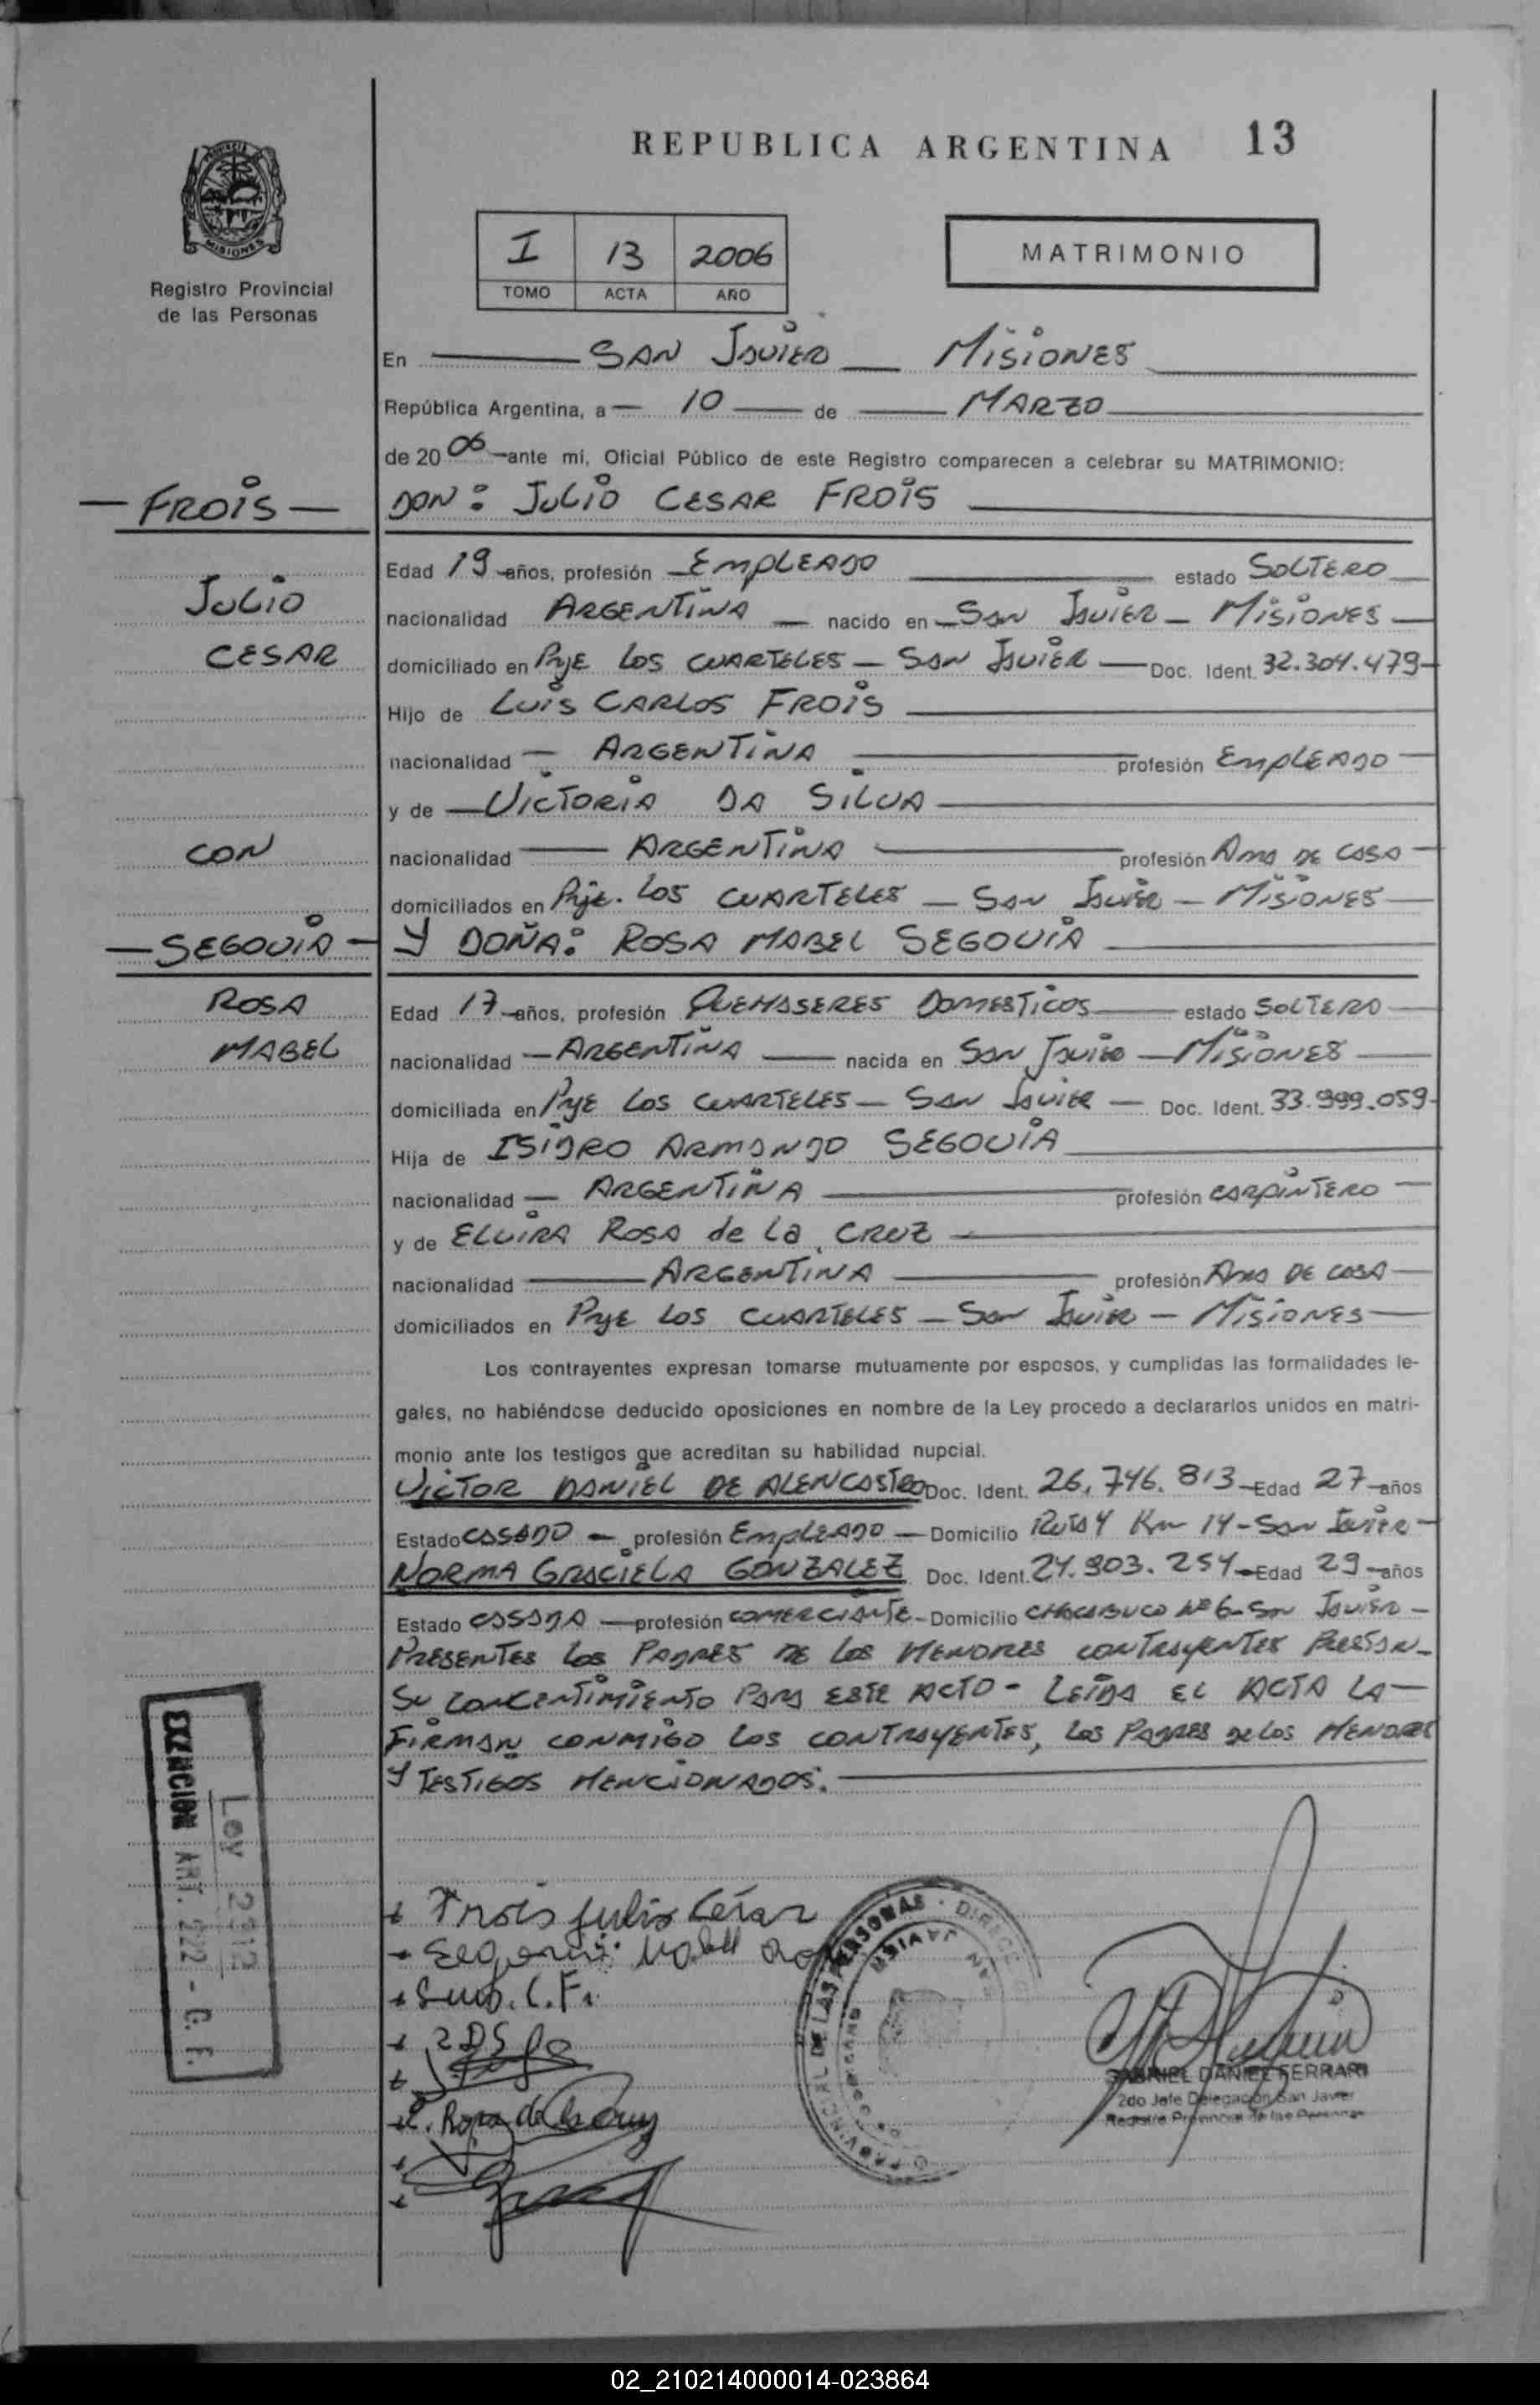 REPUBLICA ARGENTINA 13
PROVINCIA DE MISIONES
Registro Provincial
de las Personas
I 13 2006
TOMO ACTA AÑO
MATRIMONIO
En SAN JAVIER MISIONES
República Argentina, a 10 de MARZO
de 2006 ante mi, Oficial Público de este Registro comparecen a celebrar su MATRIMONIO:
FROIS
DON: JULIO CESAR FROIS
Edad 19 años, profesión EMPLEADO estado SOLTERO
JULIO
nacionalidad ARGENTINA nacido en SAN JAVIER - MISIONES
CESAR
domiciliado en Pje LOS CUARTELES - SAN JAVIER - Doc. Ident. 32.304.479
Hijo de LUIS CARLOS FROIS
nacionalidad ARGENTINA profesión EMPLEADO
y de VICTORIA DA SILVA
CON
nacionalidad ARGENTINA profesión AMA DE CASA
domiciliados en Pje. LOS CUARTELES - SAN JAVIER - MISIONES
SEGOVIA
Y DOÑA: ROSA MABEL SEGOVIA
ROSA
Edad 17 años, profesión QUEHASERES DOMESTICOS estado SOLTERO
MABEL
nacionalidad ARGENTINA nacida en SAN JAVIER - MISIONES
domiciliada en Pje LOS CUARTELES - SAN JAVIER - Doc. Ident. 33.999.059
Hija de ISIDRO ARMANDO SEGOVIA
nacionalidad ARGENTINA profesión CARPINTERO
y de ELVIRA ROSA de La CRUZ
nacionalidad ARGENTINA profesión AMA DE CASA
domiciliados en Pje LOS CUARTELES - SAN JAVIER - MISIONES
Los contrayentes expresan tomarse mutuamente por esposos, y cumplidas las formalidades le-
gales, no habiéndose deducido oposiciones en nombre de la Ley procedo a declararlos unidos en matri-
monio ante los testigos que acreditan su habilidad nupcial.
VICTOR DANIEL DE ALENCASTRO Doc. Ident. 26.746.813 Edad 27 años
Estado CASADO - profesión EMPLEADO - Domicilio Ruta 4 Km 14 - SAN JAVIER -
NORMA GRACIELA GONZALEZ Doc. Ident. 24.903.254 Edad 29 años
Estado CASADA - profesión COMERCIANTE - Domicilio CHACABUCO Nº 6 - SAN JAVIER -
PRESENTES LOS PADRES DE LOS MENORES CONTRAYENTES PRESTAN
SU CONCENTIMIENTO PARA ESTE ACTO - LEIDA EL ACTA LA
FIRMAN CONMIGO LOS CONTRAYENTES, LOS PADRES DE LOS MENORES
Y TESTIGOS MENCIONADOS.
Ley 2312
EXENCION ART. 222 - C. F.
Frois Julio César
Segovia Mabel
Rosa de la Cruz
GABRIEL DANIEL FERRARI
2do Jefe Delegación San Javier
Registro Provincial de las Personas
02_210214000014-023864